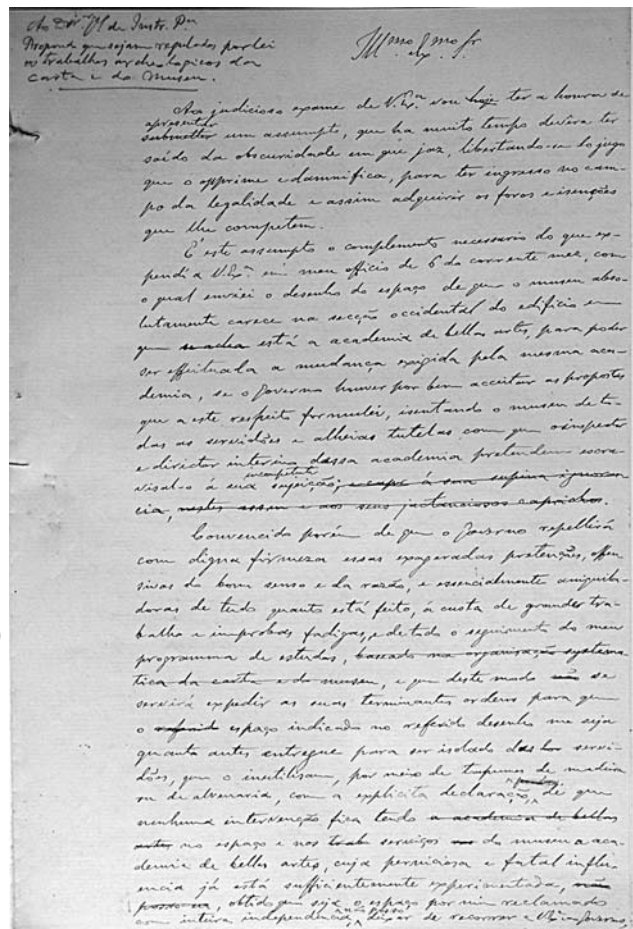 Ao Dir. Gl de Instr. Pca
Propondo que sejam regulados por lei
os trabalhos archeologicos da
carta e do museu.
Illmo Exmo Sr
Ao judicioso exame de V. Exa vou hoje ter a honra de
apresentar
submetter um assumpto, que ha muito tempo devêra ter
saído da obscuridade em que jaz, libertando-se do jugo
que o opprime e damnifica, para ter ingresso no cam-
po da legalidade e assim adquirir os foros e isenções
que lhe competem.
É este assumpto o complemento necessario do que ex-
pendi a V. Exa em meu officio de 6 do corrente mez, com
o qual enviei o desenho do espaço de que o museu abso-
lutamente carece na secção occidental do edificio em
que se acha está a academia de bellas artes, para poder
ser effeituada a mudança exigida pela mesma aca-
demia, se o Governo houver por bem acceitar as propostas
que a este respeito formulei, isentando o museu de to-
das as servidões e alheias tutelas com que o inspector
e director interino dessa academia pretendem escra-
visal-o á sua incompetente sujeição, e á sua supina ignoran-
cia, e aos seus jactanciosos caprichos.
Convencido porém de que o Governo repellirá
com digna firmeza essas exageradas pretenções, offen-
sivas do bom senso e da razão, e essencialmente aniquila-
doras de tudo quanto está feito, á custa de grandes tra-
balhos e improbas fadigas, e de todo o seguimento do meu
programma de estudos, baseado na organisação systema-
tica da carta e do museu, e que deste modo não se
servirá expedir as suas terminantes ordens para que
o referido espaço indicado no referido desenho me seja
quanto antes entregue para ser isolado das servi-
dões, que o inutilisam, por meio de tapumes de madeira
ou de alvenaria, com a explicita declaração, de que
nenhuma intervenção fica tendo a academia de bellas
artes no espaço e nos trab serviços do museu a aca-
demia de bellas artes, cuja perniciosa e fatal influ-
encia já está sufficientemente experimentada, não
posso eu, obtido que seja o espaço por mim reclamado
com inteira independencia, não posso deixar de recorrer a V. Exa e ao Governo,